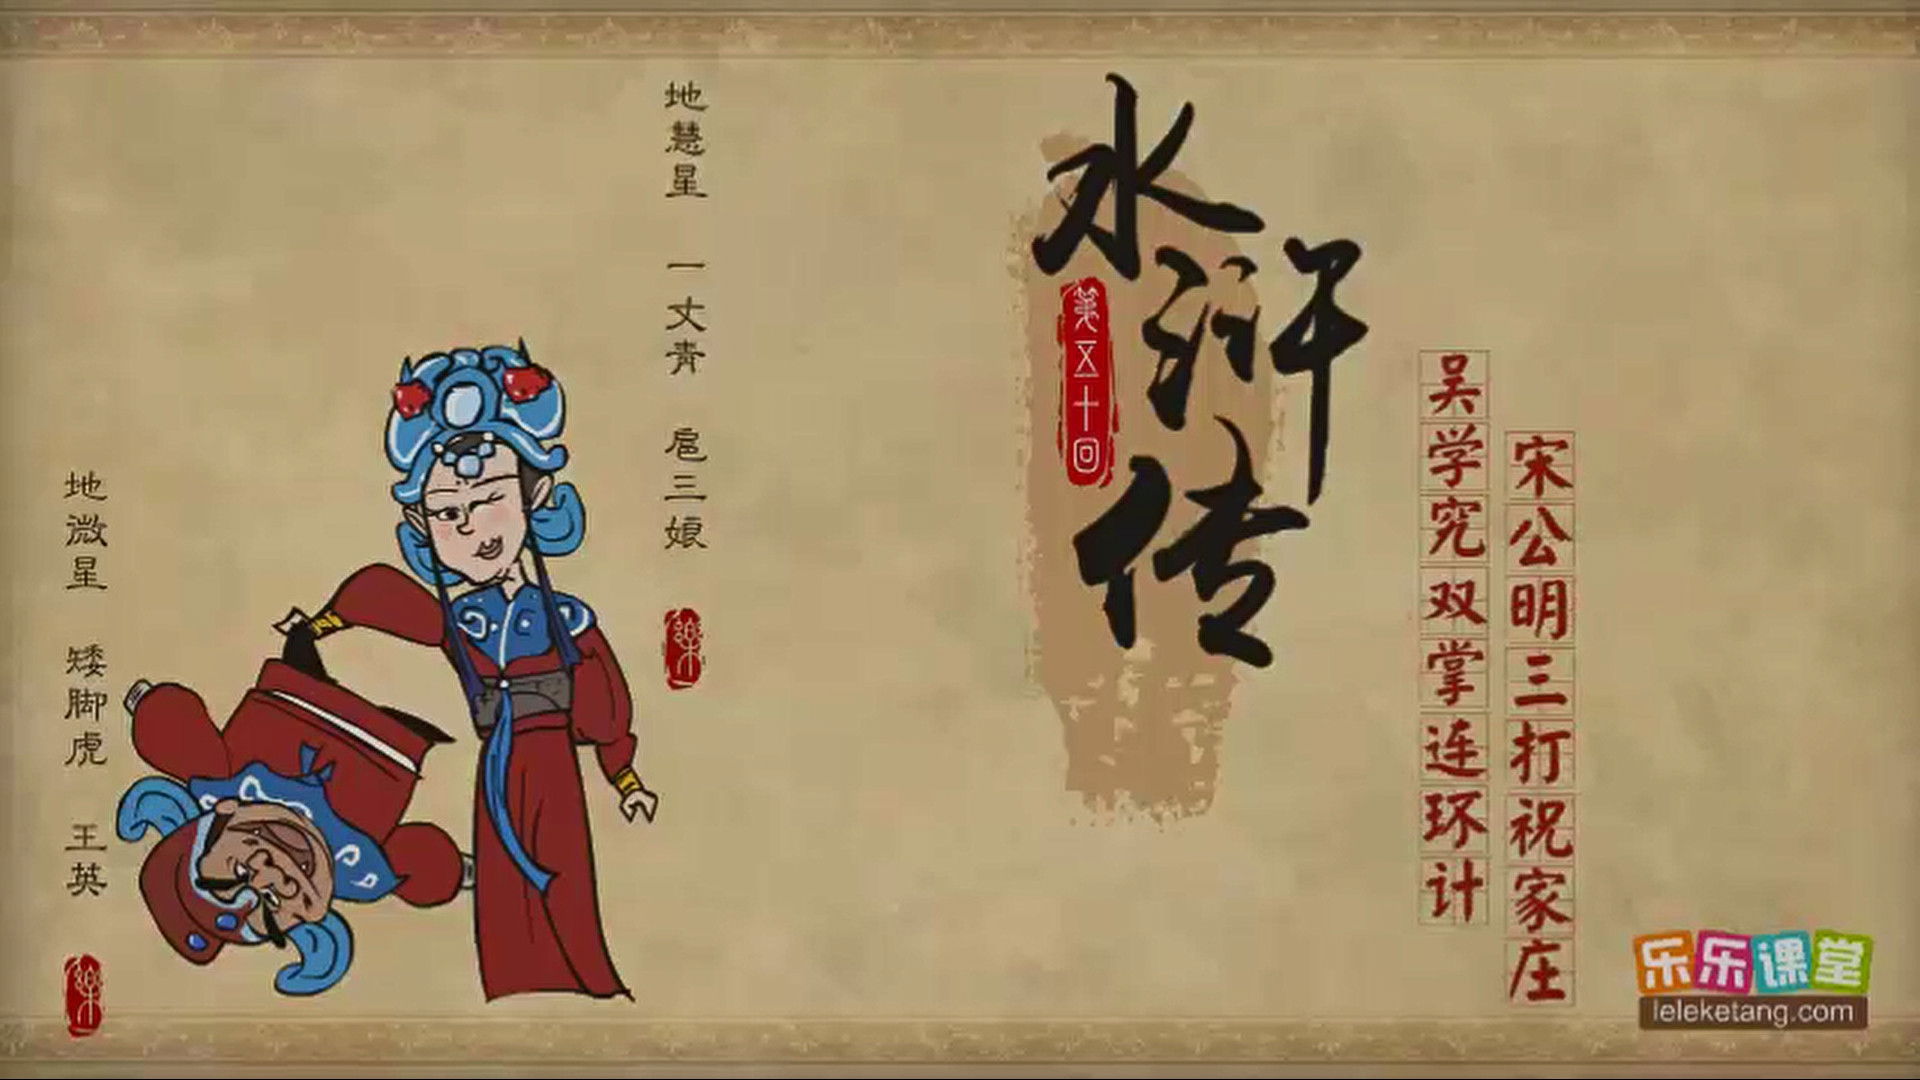 水浒传
第五十回
吴学究双掌连环计
宋公明三打祝家庄
地慧星 一丈青 扈三娘
地微星 矮脚虎 王英
樂
樂
乐乐课堂
leleketang.com